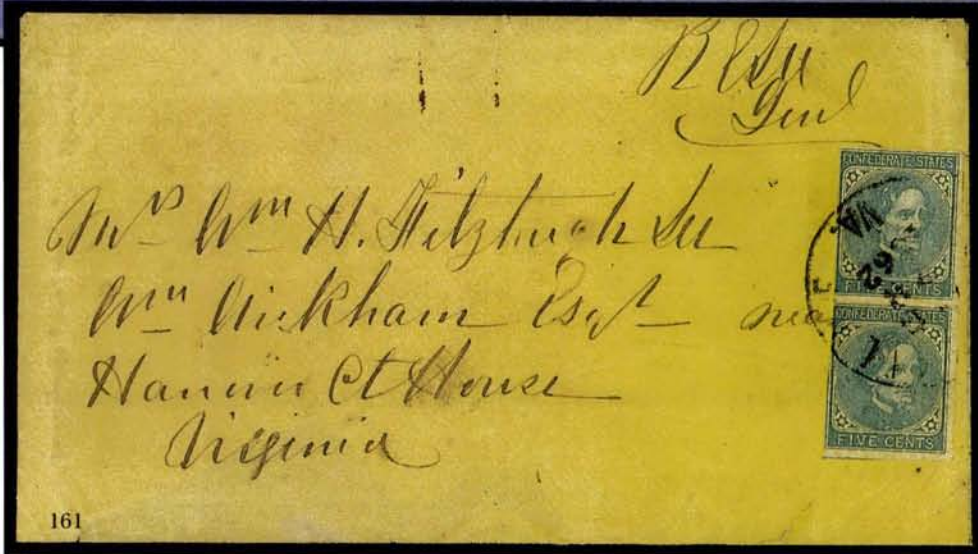 R E Lee
Genl
Mrs Wm H. Fitzhugh Lee
Wm Wickham Esqr near
Hanover Ct House
Virginia
CONFEDERATE STATES
FIVE CENTS
CONFEDERATE STATES
FIVE CENTS
VA.
161